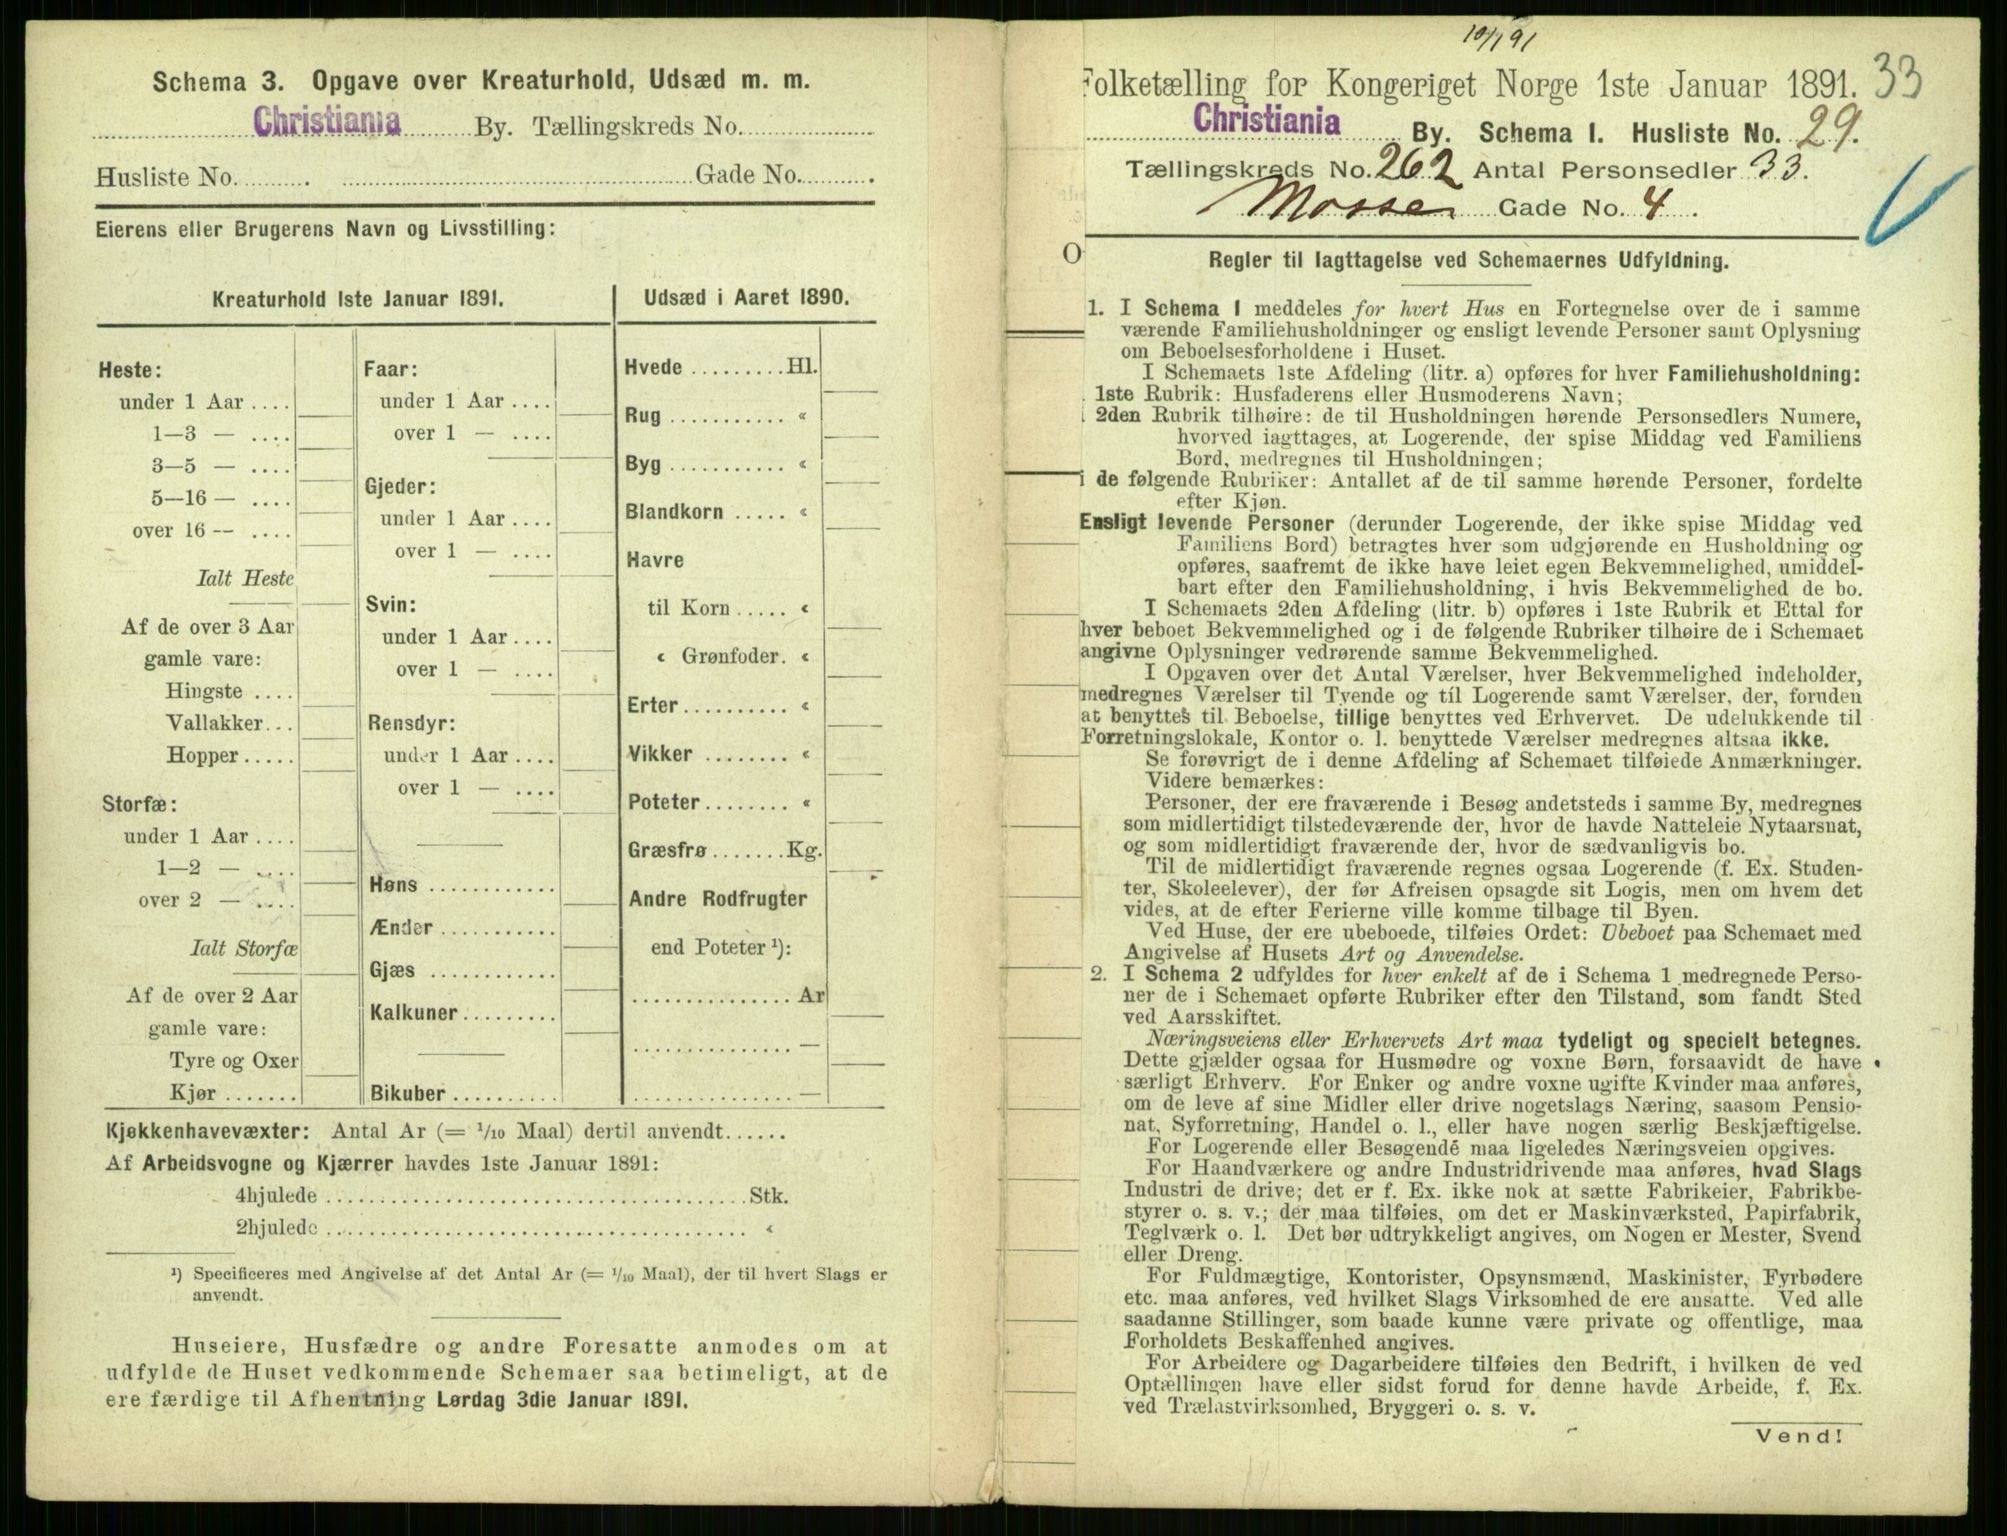 Schema 3. Opgave over Kreaturhold, Udsæd m. m.
Christiania By. Tællingskreds No.
Husliste No. Gade No.
Eierens eller Brugerens Navn og Livsstilling:
Kreaturhold 1ste Januar 1891.
Heste:
under 1 Aar ....
1—3 — ....
3—5 — ....
5—16 — ....
over 16 — ....
Ialt Heste
Af de over 3 Aar
gamle vare:
Hingste ....
Vallakker...
Hopper.....
Storfæ:
under 1 Aar ....
1—2 — ....
over 2 — ....
Ialt Storfæ
Af de over 2 Aar
gamle vare:
Tyre og Oxer
Kjør .......
Faar:
under 1 Aar ....
over 1 — ....
Gjeder:
under 1 Aar ....
over 1 — ....
Svin:
under 1 Aar ....
over 1 — ....
Rensdyr:
under 1 Aar ....
over 1 — ....
Høns ............
Ænder ...........
Gjæs ............
Kalkuner.........
Bikuber ..........
Udsæd i Aaret 1890.
Hvede .........Hl.
Rug ........... «
Byg ........... «
Blandkorn ..... «
Havre
til Korn ..... «
« Grønfoder. «
Erter.......... «
Vikker ........ «
Poteter........ «
Græsfrø.......Kg.
Andre Rodfrugter
end Poteter ¹):
............... Ar
............... —
............... —
Kjøkkenhavevæxter: Antal Ar (= 1/10 Maal) dertil anvendt......
Af Arbeidsvogne og Kjærrer havdes 1ste Januar 1891:
4hjulede ........................................Stk.
2hjulede ........................................ «
¹) Specificeres med Angivelse af det Antal Ar (= 1/10 Maal), der til hvert Slags er
anvendt.
Huseiere, Husfædre og andre Foresatte anmodes om at
udfylde de Huset vedkommende Schemaer saa betimeligt, at de
ere færdige til Afhentning Lørdag 3die Januar 1891.
10/1 91
Folketælling for Kongeriget Norge 1ste Januar 1891. 33
Christiania By. Schema I. Husliste No. 29.
Tællingskreds No. 262 Antal Personsedler 33.
Mosse Gade No. 4.
O
Regler til Iagttagelse ved Schemaernes Udfyldning.
1. I Schema 1 meddeles for hvert Hus en Fortegnelse over de i samme
værende Familiehusholdninger og ensligt levende Personer samt Oplysning
om Beboelsesforholdene i Huset.
I Schemaets 1ste Afdeling (litr. a) opføres for hver Familiehusholdning:
1ste Rubrik: Husfaderens eller Husmoderens Navn;
i 2den Rubrik tilhøire: de til Husholdningen hørende Personsedlers Numere,
hvorved iagttages, at Logerende, der spise Middag ved Familiens
Bord, medregnes til Husholdningen;
i de følgende Rubriker: Antallet af de til samme hørende Personer, fordelte
efter Kjøn.
Ensligt levende Personer (derunder Logerende, der ikke spise Middag ved
Familiens Bord) betragtes hver som udgjørende en Husholdning og
opføres, saafremt de ikke have leiet egen Bekvemmelighed, umiddel-
bart efter den Familiehusholdning, i hvis Bekvemmelighed de bo.
I Schemaets 2den Afdeling (litr. b) opføres i 1ste Rubrik et Ettal for
hver beboet Bekvemmelighed og i de følgende Rubriker tilhøire de i Schemaet
angivne Oplysninger vedrørende samme Bekvemmelighed.
I Opgaven over det Antal Værelser, hver Bekvemmelighed indeholder,
medregnes Værelser til Tyende og til Logerende samt Værelser, der, foruden
at benyttes til Beboelse, tillige benyttes ved Erhvervet. De udelukkende til
Forretningslokale, Kontor o. l. benyttede Værelser medregnes altsaa ikke.
Se forøvrigt de i denne Afdeling af Schemaet tilføiede Anmærkninger.
Videre bemærkes:
Personer, der ere fraværende i Besøg andetsteds i samme By, medregnes
som midlertidigt tilstedeværende der, hvor de havde Natteleie Nytaarsnat,
og som midlertidigt fraværende der, hvor de sædvanligvis bo.
Til de midlertidigt fraværende regnes ogsaa Logerende (f. Ex. Studen-
ter, Skoleelever), der før Afreisen opsagde sit Logis, men om hvem det
vides, at de efter Ferierne ville komme tilbage til Byen.
Ved Huse, der ere ubeboede, tilføies Ordet: Ubeboet paa Schemaet med
Angivelse af Husets Art og Anvendelse.
2. I Schema 2 udfyldes for hver enkelt af de i Schema 1 medregnede Perso-
ner de i Schemaet opførte Rubriker efter den Tilstand, som fandt Sted
ved Aarsskiftet.
Næringsveiens eller Erhvervets Art maa tydeligt og specielt betegnes.
Dette gjælder ogsaa for Husmødre og voxne Børn, forsaavidt de have
særligt Erhverv. For Enker og andre voxne ugifte Kvinder maa anføres,
om de leve af sine Midler eller drive nogetslags Næring, saasom Pensio-
nat, Syforretning, Handel o. l., eller have nogen særlig Beskjæftigelse.
For Logerende eller Besøgende maa ligeledes Næringsveien opgives.
For Haandværkere og andre Industridrivende maa anføres, hvad Slags
Industri de drive; det er f. Ex. ikke nok at sætte Fabrikeier, Fabrikbe-
styrer o. s. v.; der maa tilføies, om det er Maskinværksted, Papirfabrik,
Teglværk o. l. Det bør udtrykkeligt angives, om Nogen er Mester, Svend
eller Dreng.
For Fuldmægtige, Kontorister, Opsynsmænd, Maskinister, Fyrbødere
etc. maa anføres, ved hvilket Slags Virksomhed de ere ansatte. Ved alle
saadanne Stillinger, som baade kunne være private og offentlige, maa
Forholdets Beskaffenhed angives.
For Arbeidere og Dagarbeidere tilføies den Bedrift, i hvilken de ved
Optællingen have eller sidst forud for denne havde Arbeide, f. Ex.
ved Trælastvirksomhed, Bryggeri o. s. v.
Vend!